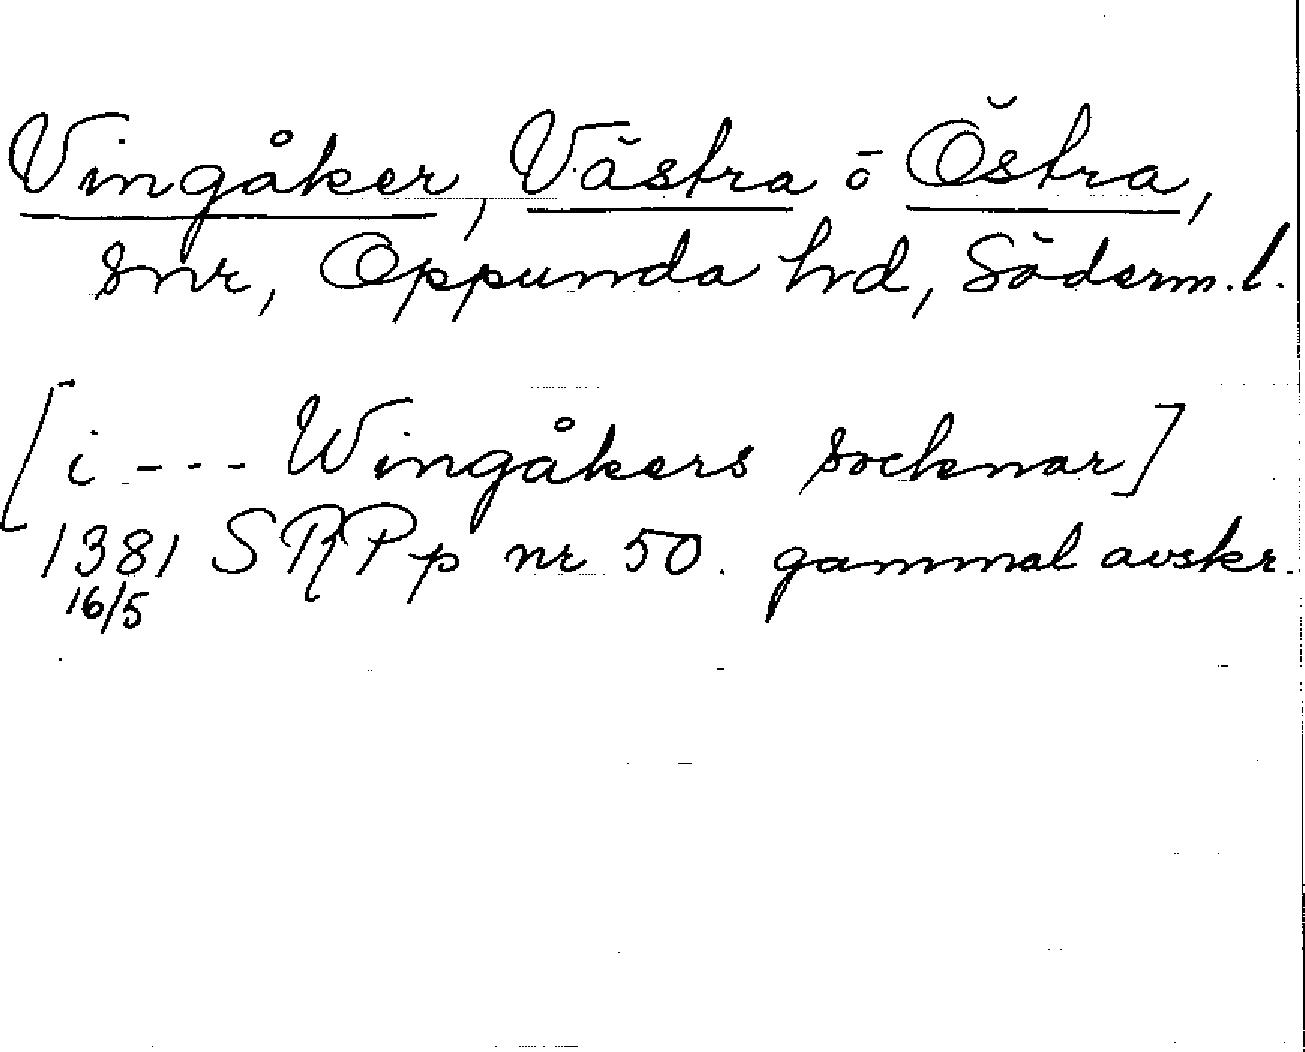 Vingåker, Västra o Östra,
snr, Oppunda hd, Söderm.l.
[i --- Wingåkers socknar]
1381 SRPp nr 50. gammal avskr.
16/5